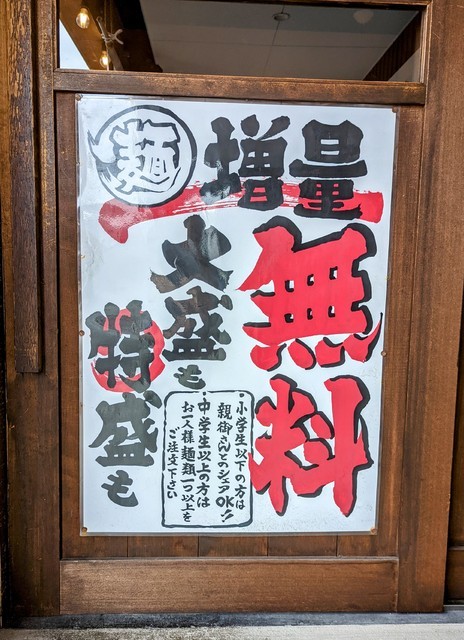 麺増量
無料
大盛も
特盛も
・小学生以下の方は
親御さんとのシェアOK!!
・中学生以上の方は
お一人様麺類一つ以上を
ご注文下さい